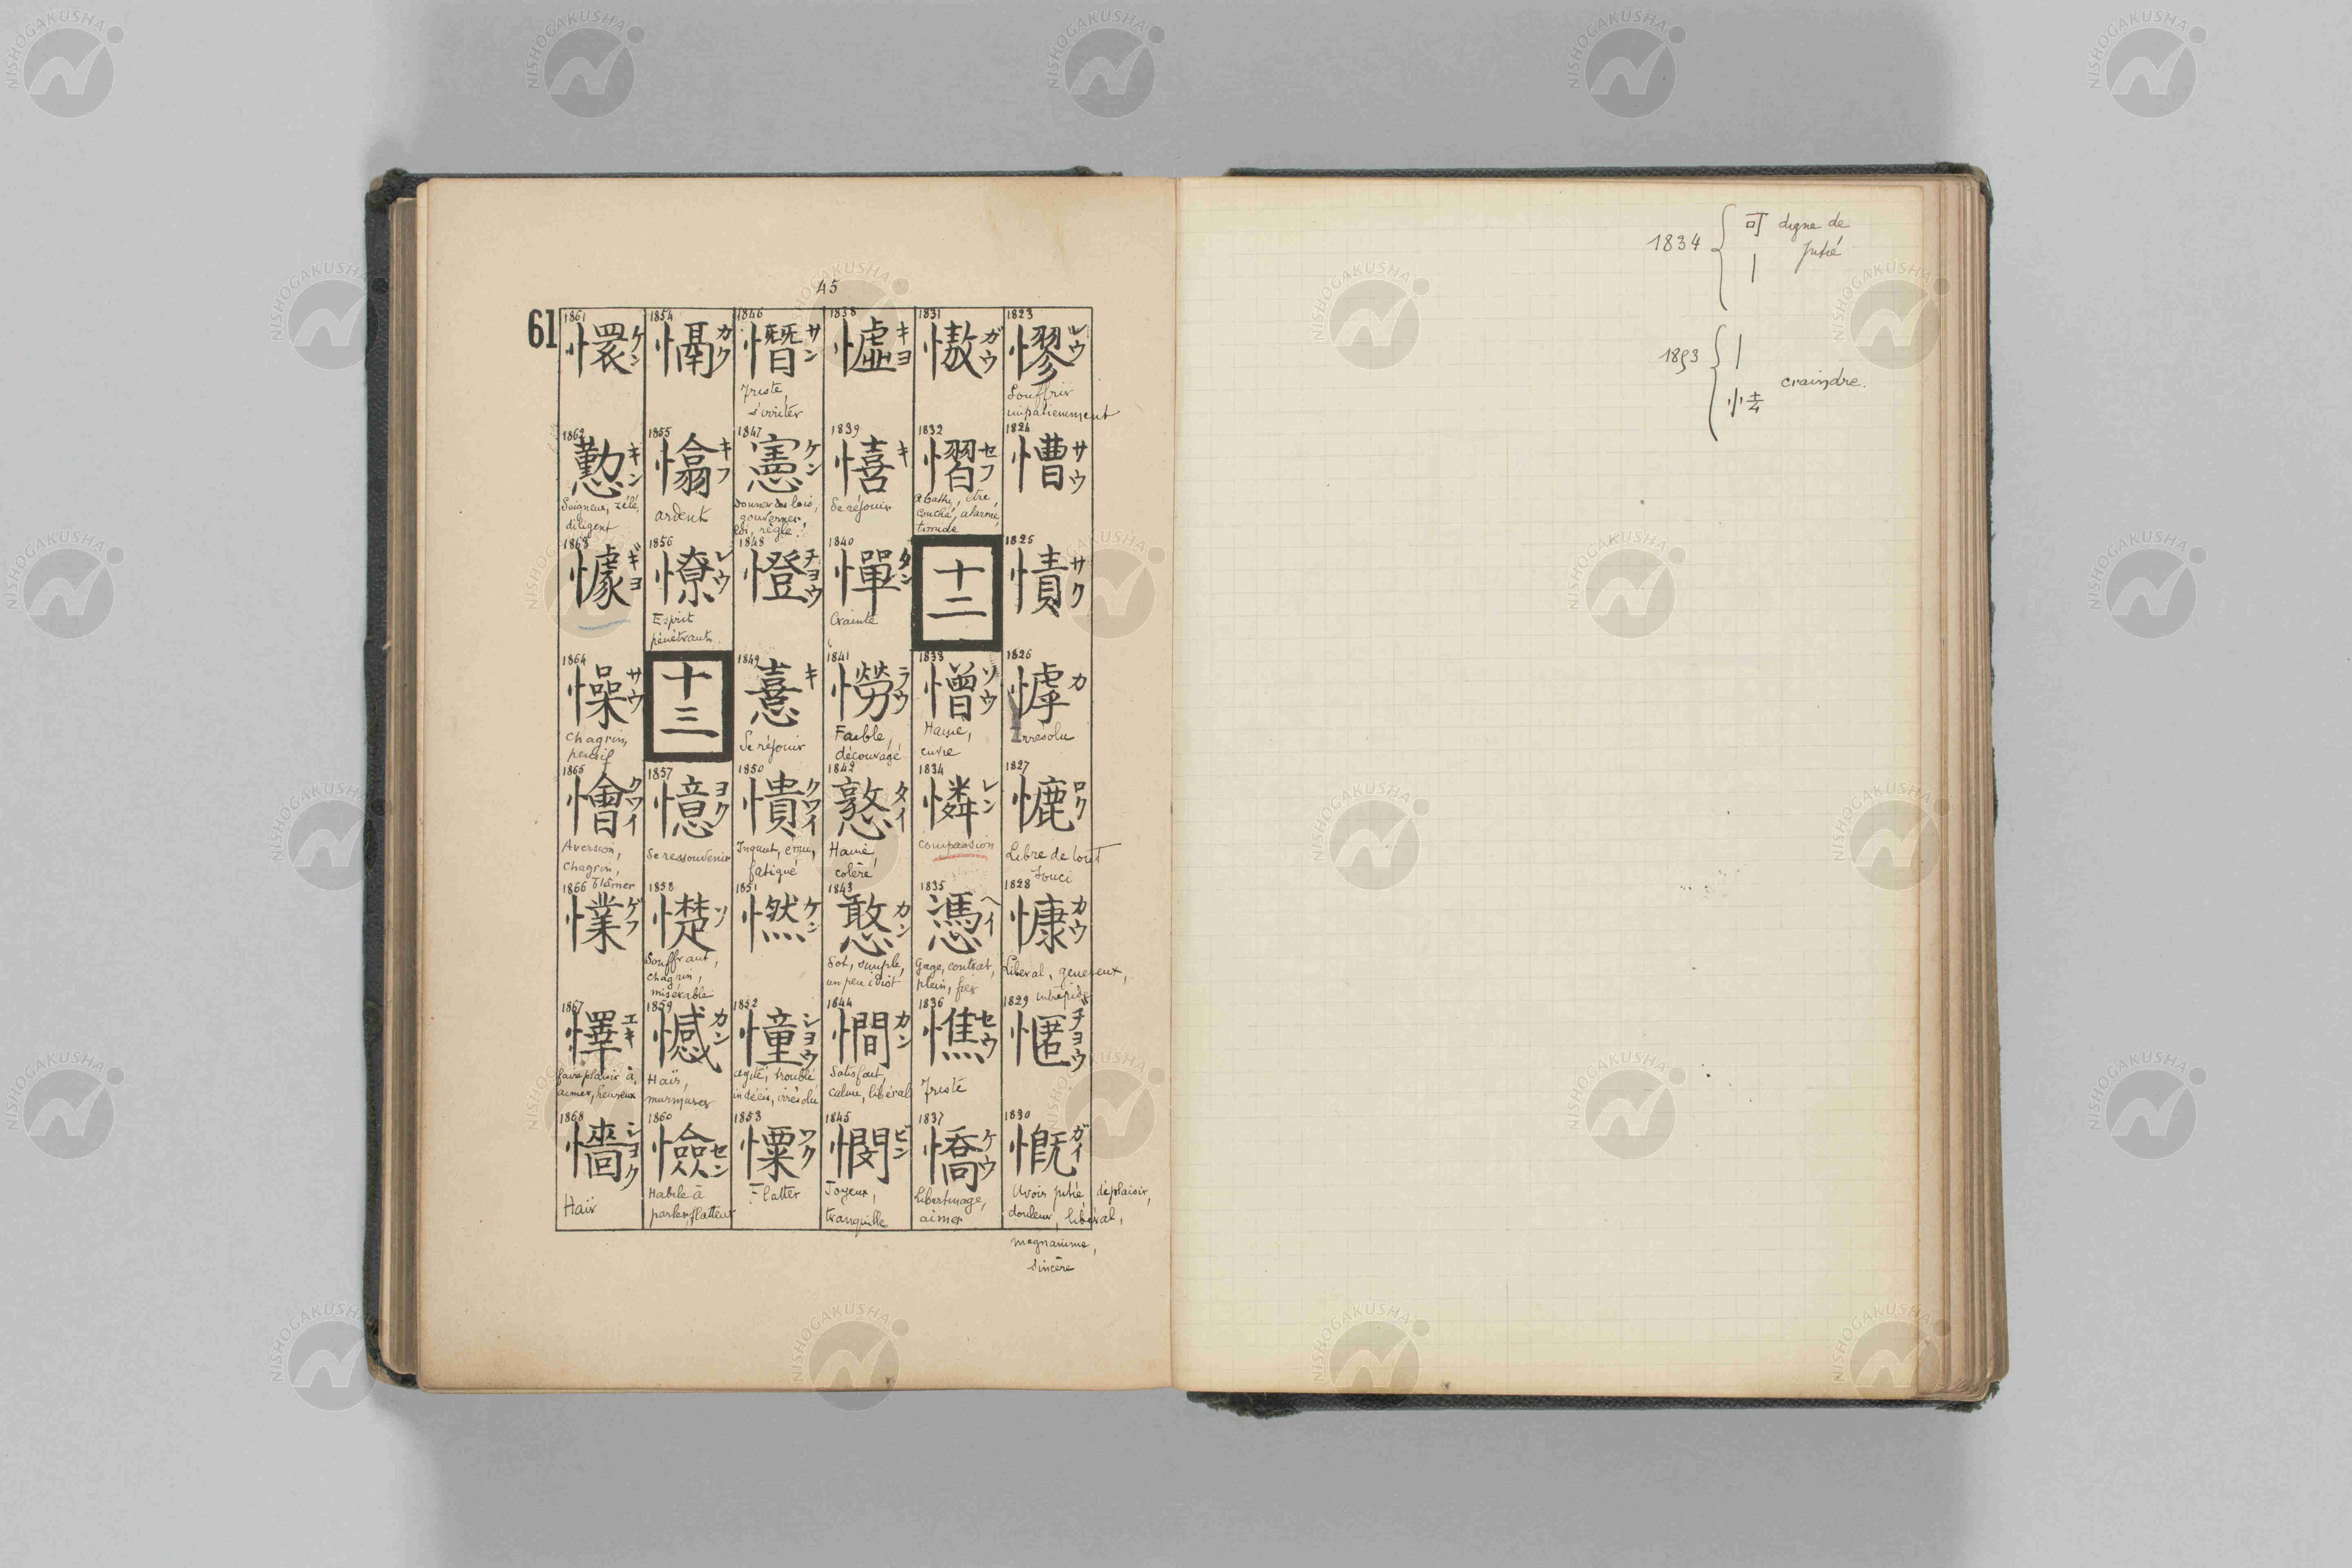 45
61
1823
憀 レウ
Souffrir
impatiemment
1824
慒 サウ
1825
憤 サク
1826
㦆 カ
Irresolu
1827
ロク
Libre de tout
souci
1828
慷 カウ
Libéral, genereux,
intrépide
1829
慝 チヨウ
1830
慨 ガイ
Avoir pitié, déplaisir,
douleur, libéral,
magnanime,
sincère
1831
憿 ガウ
1832
慴 セフ
Abattu, être
couché, alarmé,
timide
十二
1833
憎 ソウ
Haine,
1834
憐 レン
Compassion
1835
憑 ヘイ
Gage, contrat,
plein,
1836
憔 セウ
Triste
1837
憍 ケウ
Libertinage,
aimer
1838
憈 キヨ
1839
憘 キ
Se réjouir
1840
憚 タン
Crainte
1841
憦 ラウ
Faible,
découragé
1842
憝 タイ
Haine,
colère
1843
憨 カン
Sot, simple,
un peu idiot
1844
憪 カン
Satisfait,
calme, libéral
1845
憫 ビン
Joyeux,
tranquille
1846
憯 サン
Triste,
s'irriter
1847
憲 ケン
Donner des lois,
gouverner,
loi, règle.
1848
憕 チヨウ
1849
憙 キ
Se réjouir
1850
憒 クワイ
Inquiet, ému,
fatigué
1851
㦓 ケン
1852
憧 シヨウ
Agité, troublé
indécis, irrésolu
1853
ワク
Flatter
1854
カク
1855
キフ
ardent
1856
憭 レウ
Esprit
pénétrant.
十三
1857
憶 ヨク
Se ressouvenir
1858
憷 ソ
Souffrant,
chagrin,
misérable
1859
憾 カン
Haïr,
murmurer
1860
憸 セン
Habile à
parler, flatteur
1861
懁 ケン
1862
懃 キン
Soigneux, zélé,
diligent
1863
懅 ギヨ
1864
懆 サウ
Chagrin,
pensif
1865
懀 クワイ
Aversion,
chagrin,
blâmer
1866
㦪 ゲフ
1867
懌 エキ
faire plaisir à,
aimer, heureux
1868
懎 シヨク
Haïr
1834 { 可 digne de
| pitié
1893 { |
craindre.